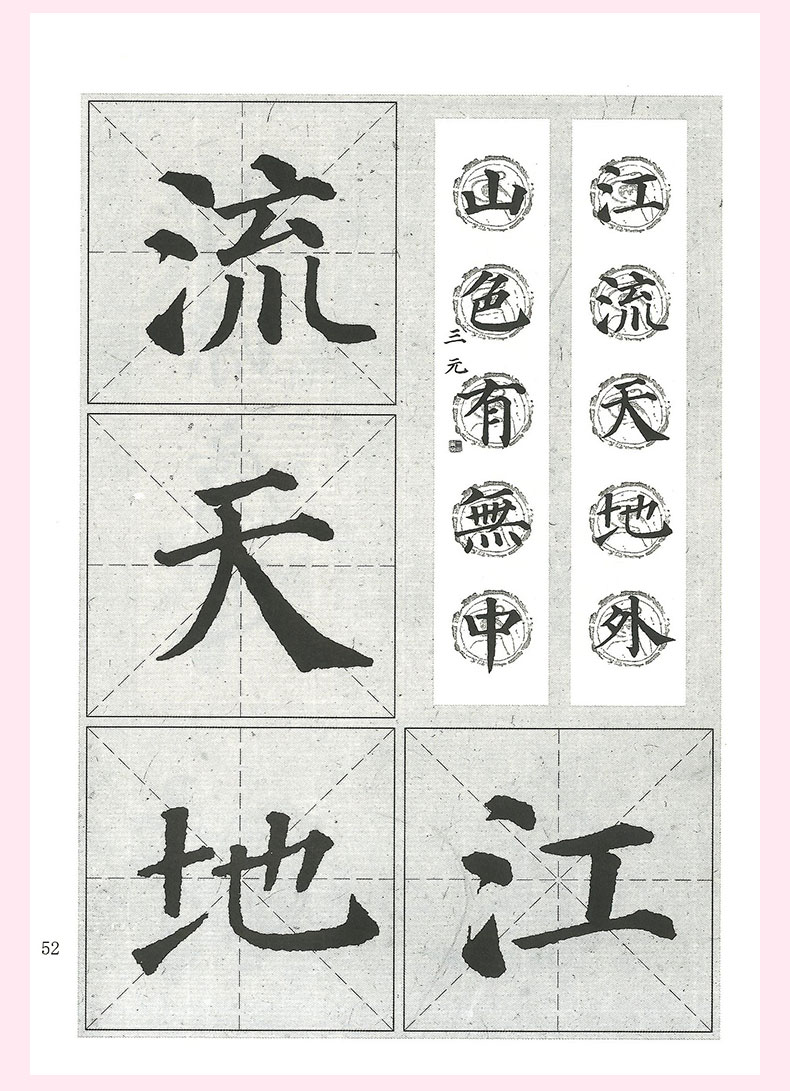 江流天地外
山色有無中
三元
江
流
天
地
52